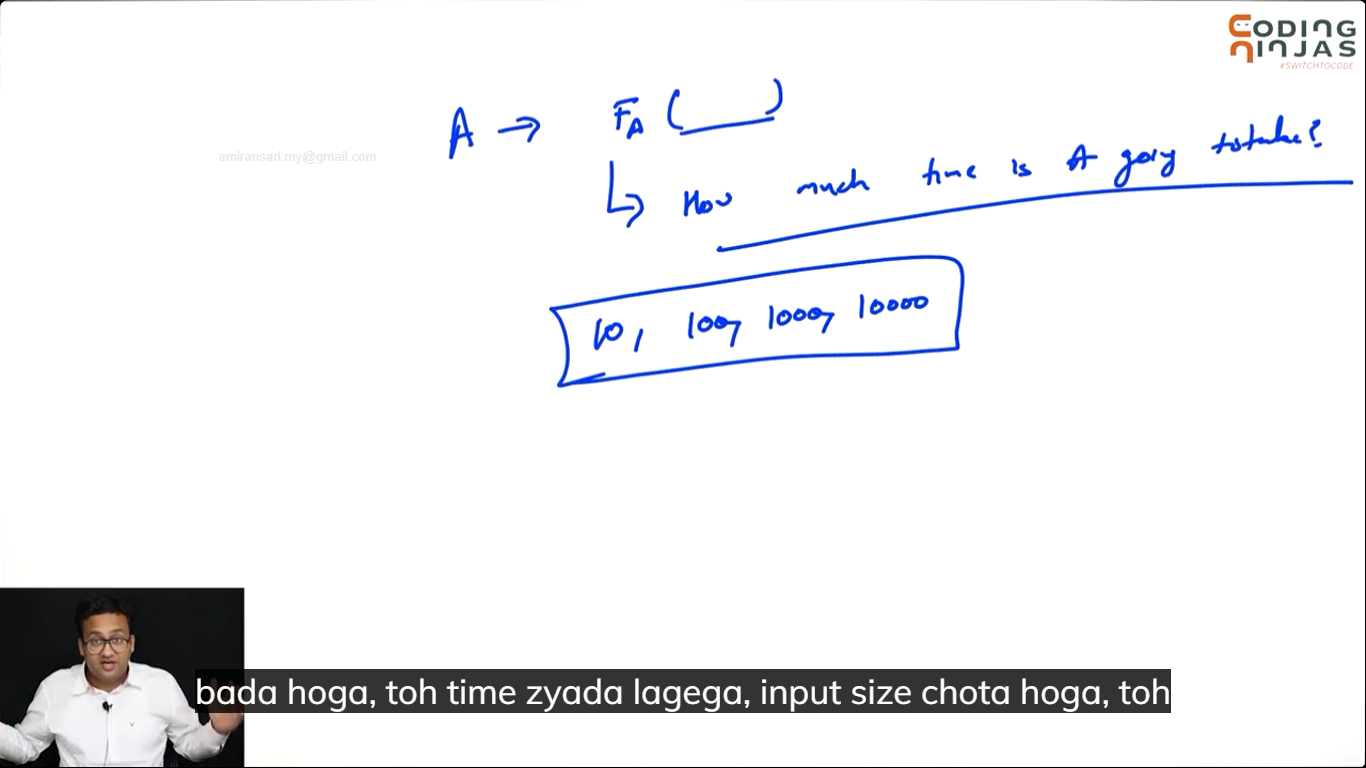 CODING
NINJAS
#SWITCHTOCODE
A → FA ( )
amiransari.my@gmail.com
↳ How much time is A going to take?
10, 100, 1000, 10000
bada hoga, toh time zyada lagega, input size chota hoga, toh